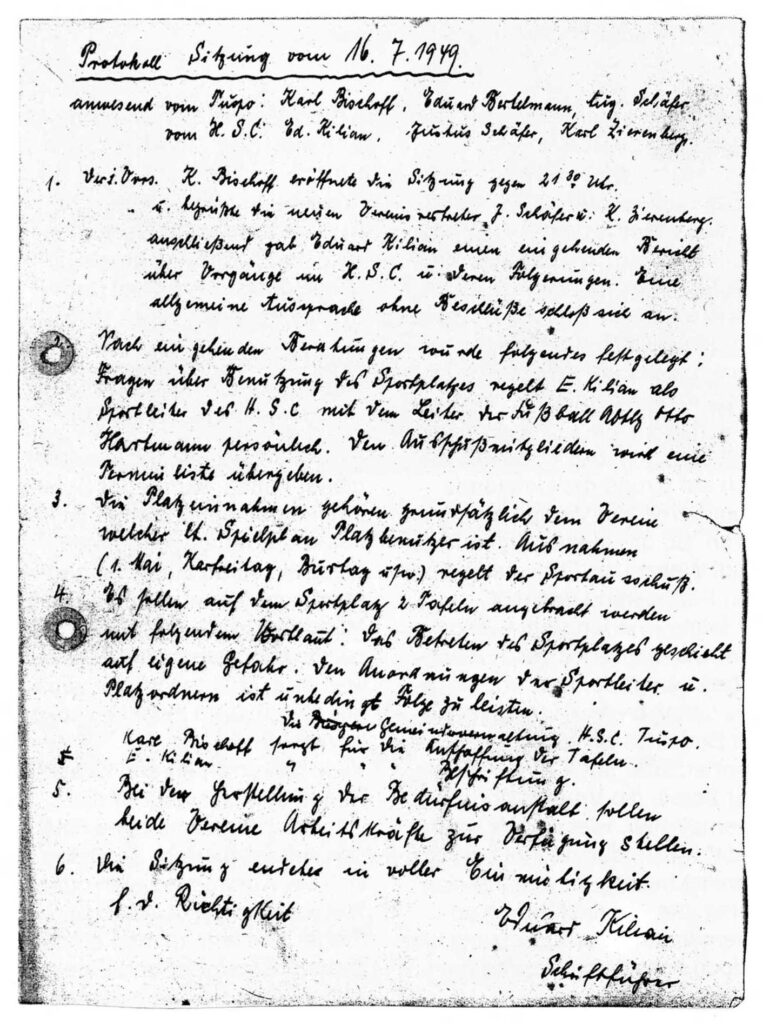 Protokoll Sitzung vom 16. 7. 1949.
anwesend vom Tuspo: Karl Bischoff, Eduard Bertelmann, Aug. Schäfer
vom H. S. C. Ed. Kilian, Justus Schäfer, Karl Zierenberg.
1. Der 1. Vors. K. Bischoff eröffnete die Sitzung gegen 21 30 Uhr.
u. begrüßte die neuen Vereinsvertreter J. Schäfer u. K. Zierenberg.
anschließend gab Eduard Kilian einen eingehenden Bericht
über Vorgänge im H. S. C. u. deren Folgerungen. Eine
allgemeine Aussprache ohne Beschlüße schloß sich an.
2. Nach eingehenden Beratungen wurde folgendes festgelegt:
Fragen über Benutzung des Sportplatzes regelt E. Kilian als
Sportleiter des H. S. C mit dem Leiter der Fußball Abtlg Otto
Hartmann persönlich. Den Ausschußmitgliedern wird eine
Terminliste übergeben.
3. Die Platzeinnahmen gehören grundsätzlich dem Verein
welcher lt. Spielplan Platzbenutzer ist. Ausnahmen
(1. Mai, Karfreitag, Bußtag usw.) regelt der Sportausschuß.
4. Es sollen auf dem Sportplatz 2 Tafeln angebracht werden
mit folgendem Wortlaut: Das Betreten des Sportplatzes geschieht
auf eigene Gefahr. Den Anordnungen der Sportleiter u.
Platzordnern ist unbedingt Folge zu leisten.
Die Gemeindeverwaltung H.S.C. Tuspo.
Karl Bischoff sorgt für die Anschaffung der Tafeln.
E. Kilian " " " Beschriftung.
5. Bei der Herstellung der Bedürfnisanstalt sollen
beide Vereine Arbeitskräfte zur Verfügung stellen.
6. Die Sitzung endete in voller Einmütigkeit.
f. d. Richtigkeit
Eduard Kilian
Schriftführer